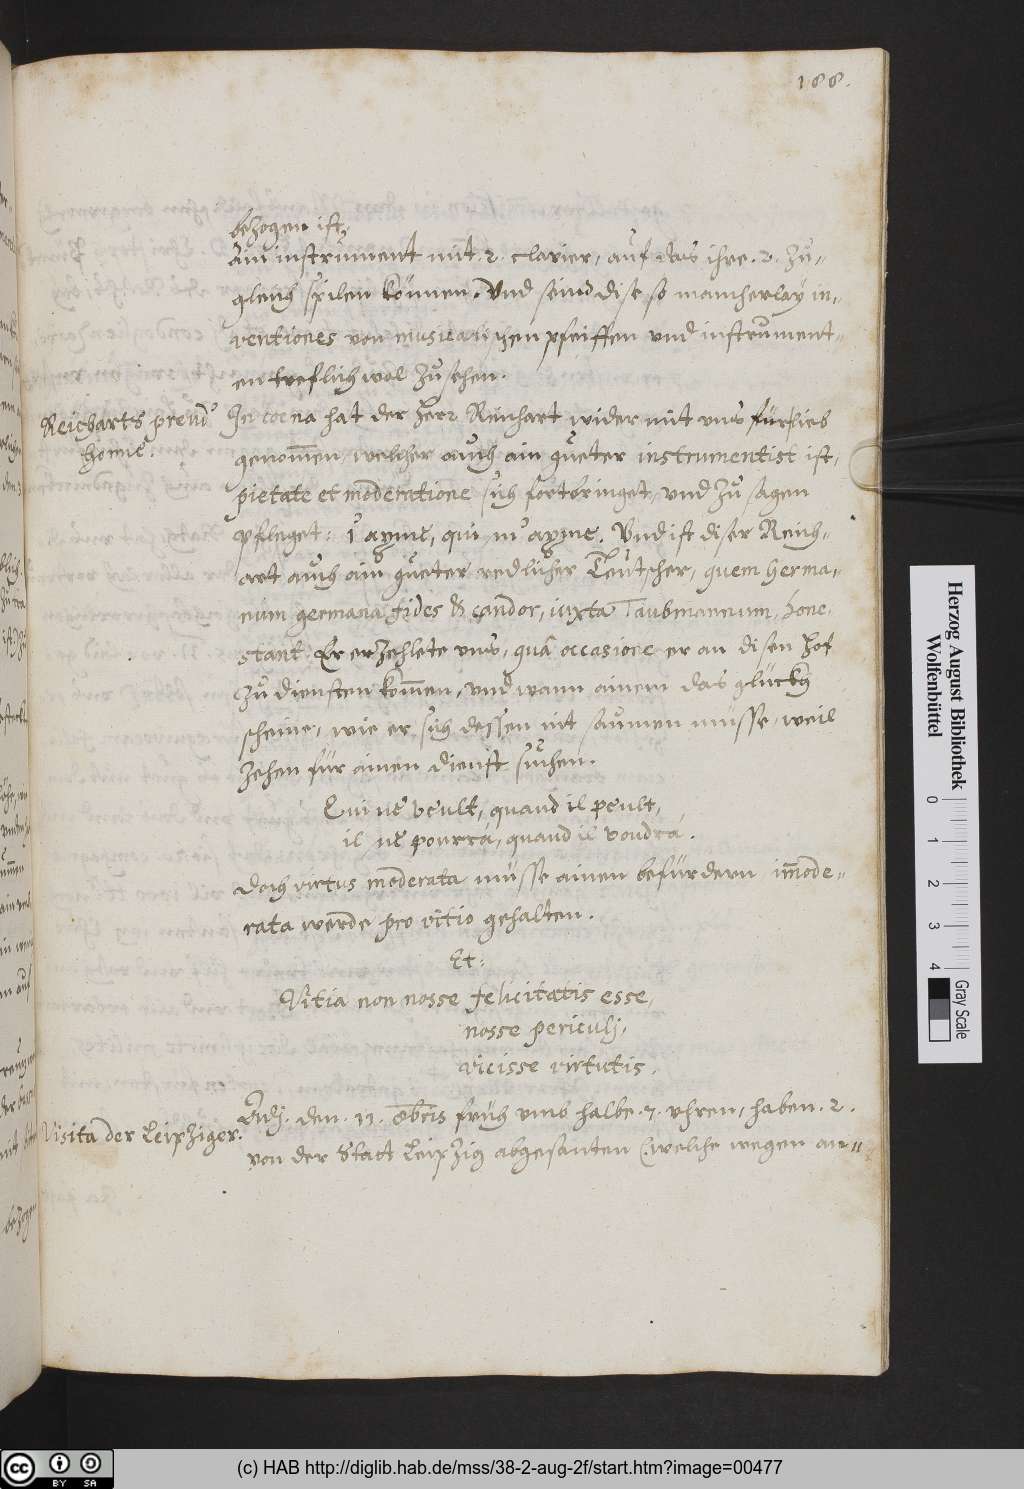 188.
bezogen ist,
Ain instrument mit .2. clavier, auf das ihre .2. zu-
gleich spilen können. Und seind dise so mancherlay in-
ventiones von musicalischen pfeiffen und instrument-
en treflich wol zu sehen.
Reicharts preud'
homie.
In coena hat der Herr Reichart wider mit uns fürlieb
genom̅en, welcher auch ain gueter instrumentist ist,
pietate et moderatione sich fortbringet, und zu sagen
pfleget: J'ayme, qui m'ayme. Und ist diser Reich-
art auch ain gueter redlicher Teutscher, quem Germa-
num germana fides & candor, iuxta Taubmannum, hone-
stant. Er erzehlete uns, quâ occasione er an disen Hof
zu diensten kom̅en, und wann ainem das glückh
scheine, wie er sich dessen nit saumen müsse, weil
zehen für ainen dienst suchen.
Qui ne veult, quand il peult,
il ne pourrà, quand il voudrà.
Doch virtus moderata müsse ainen befürdern im̅ode-
rata werde pro vitio gehalten.
Et:
Vitia non nosse felicitatis esse,
nosse periculj,
vicisse virtutis.
Visita der Leipziger.
den .11. 8bris früh umb halbe .7. uhren, haben .2.
von der Statt Leipzig abgesanten (welche wegen an-
Herzog August Bibliothek
Wolfenbüttel
0 1 2 3 4
Gray Scale
cc BY SA
(c) HAB http://diglib.hab.de/mss/38-2-aug-2f/start.htm?image=00477